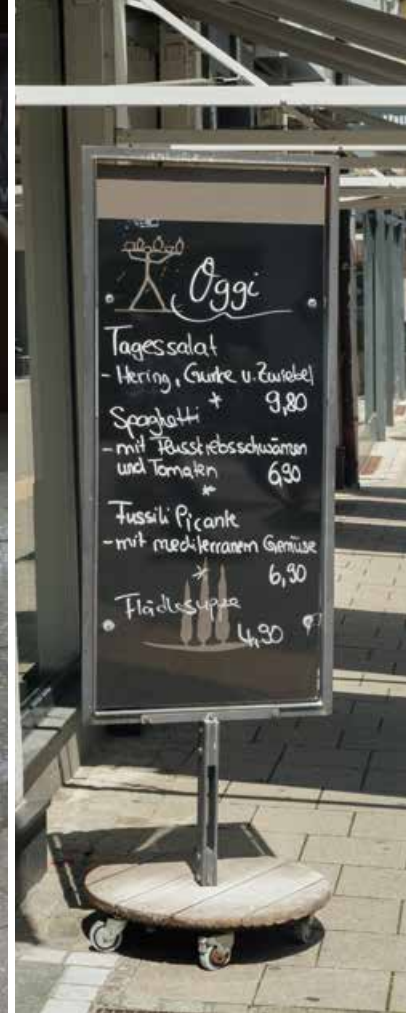 Oggi
Tagessalat
- Hering, Gurke u. Zwiebel
* 9,80
Spaghetti
- mit Flusskrebsschwänzen
und Tomaten 6,90
*
Fussili Picante
- mit mediterranem Gemüse
* 6,90
Flädlesuppe
4,90